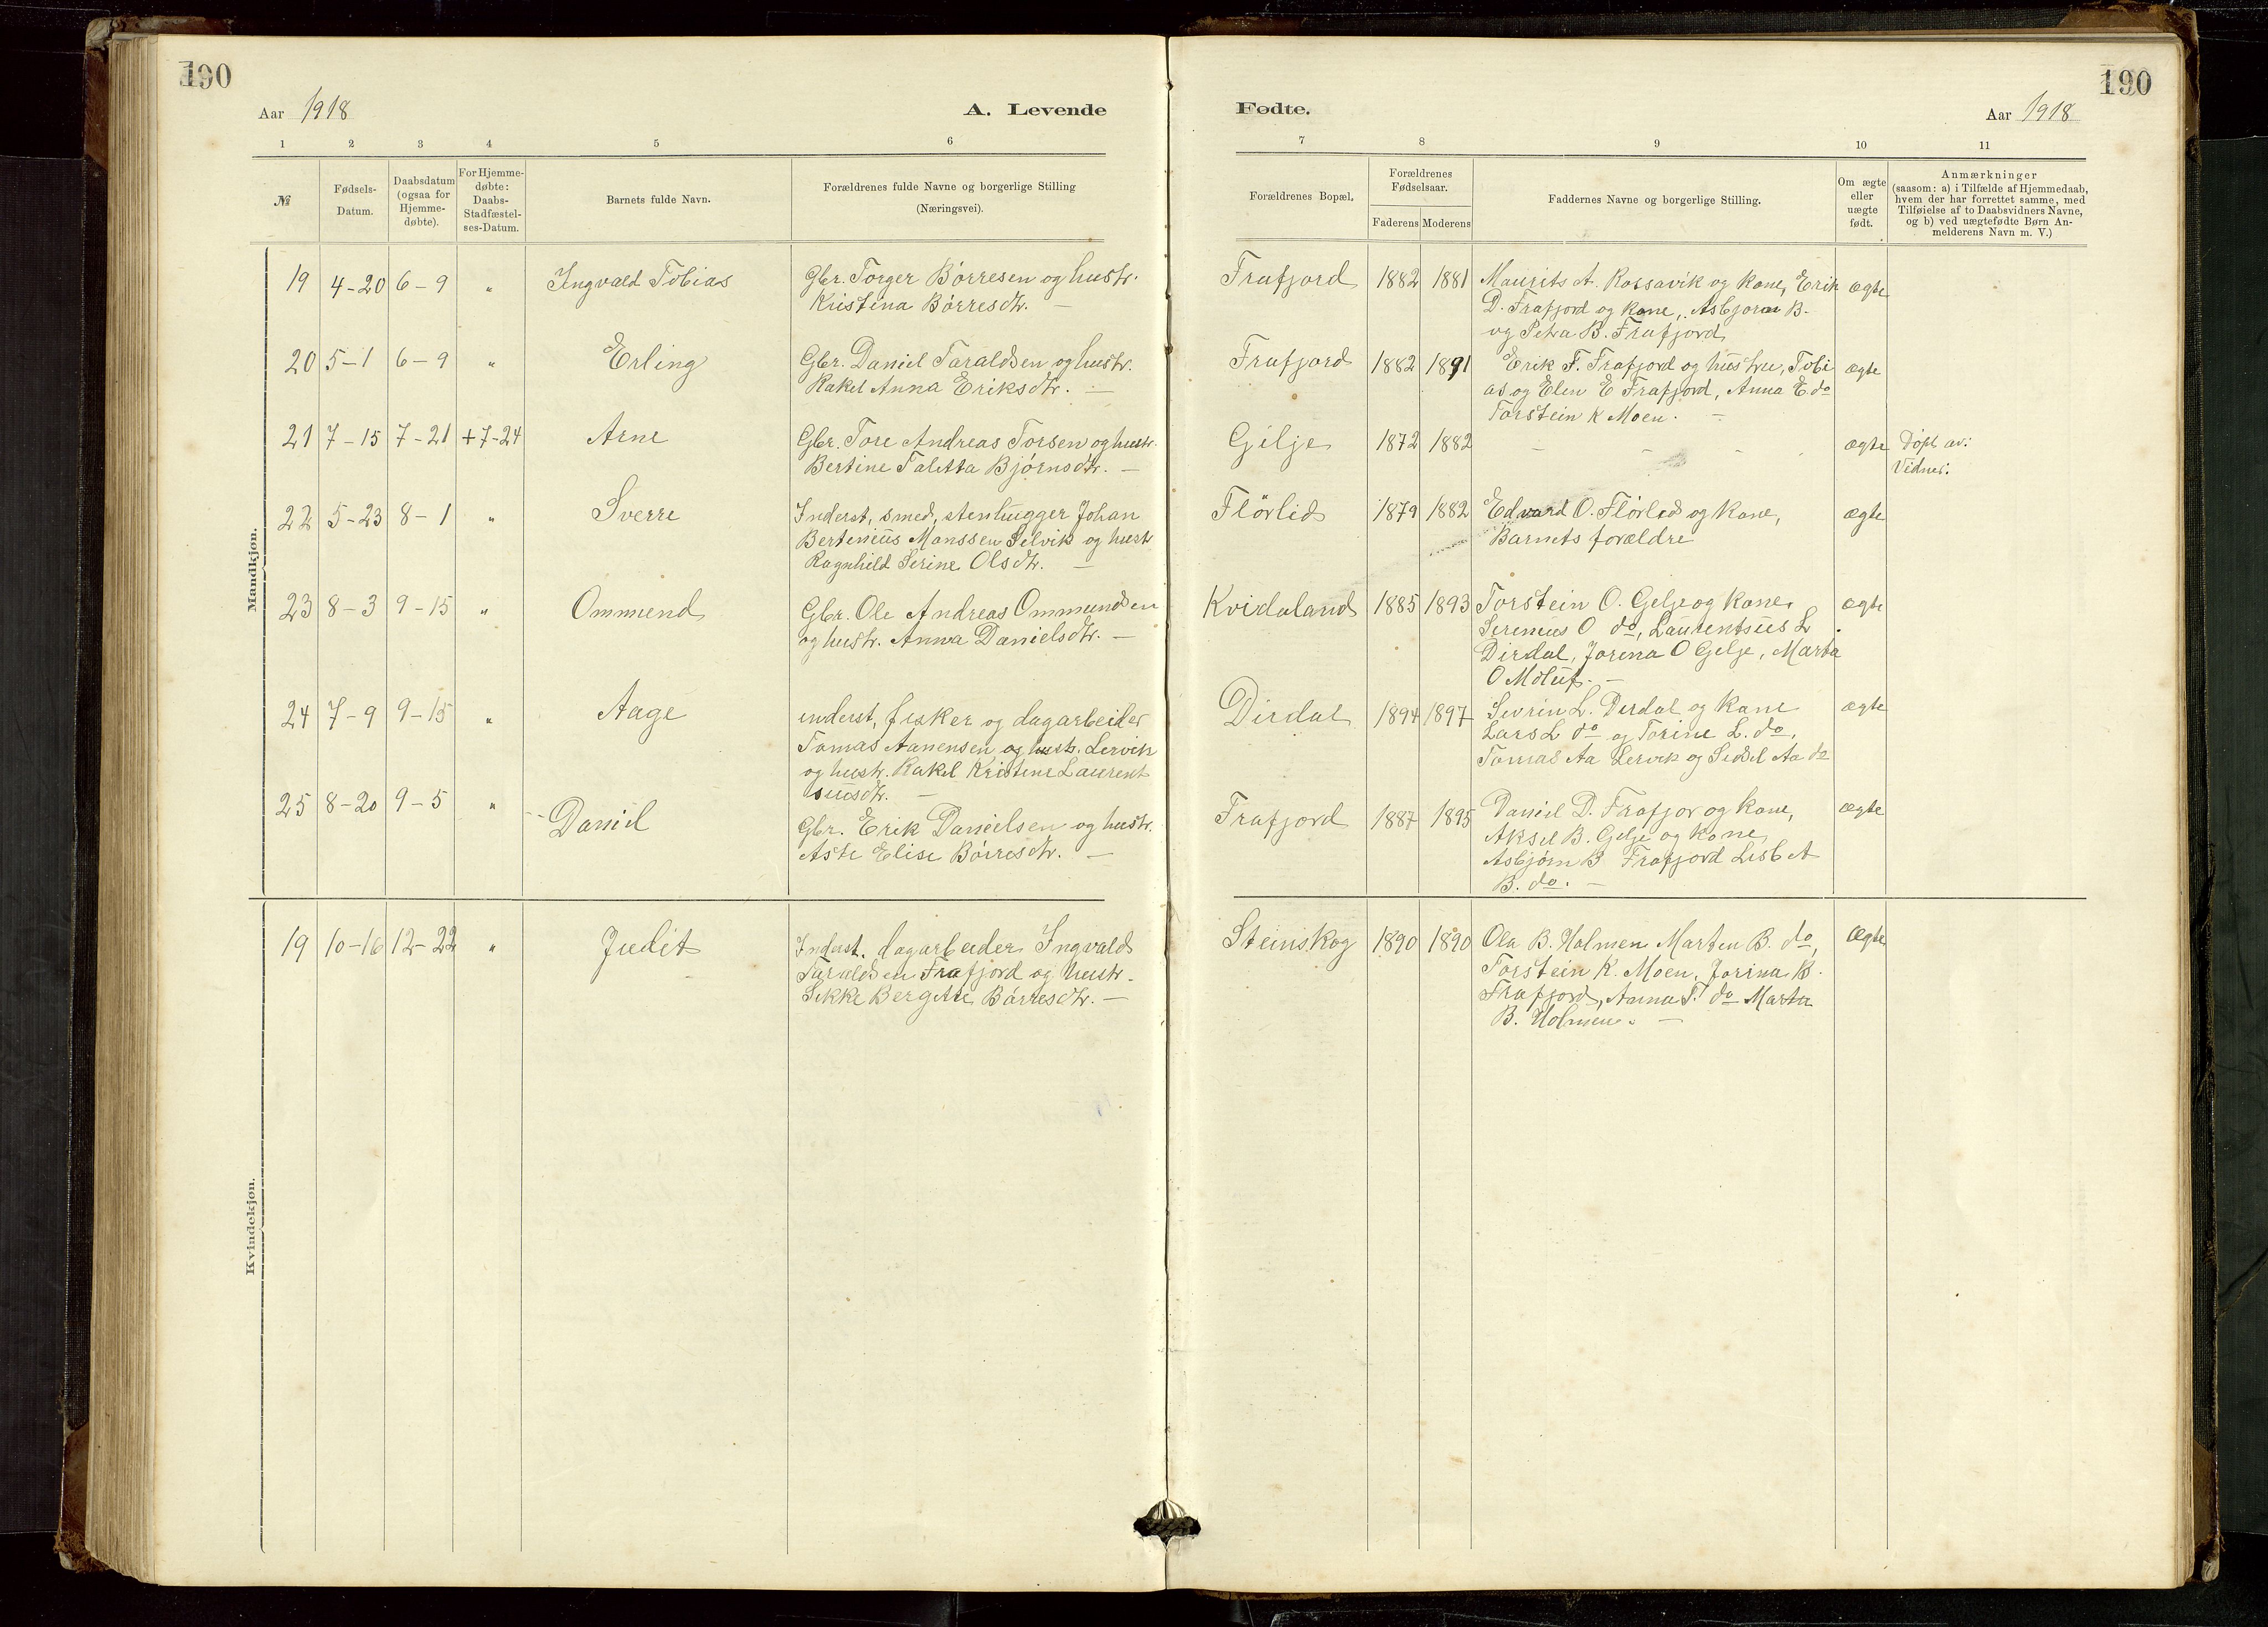 190
Aar 1918
A. Levende
1 2 3 4 5 6
№
Fødsels-
Datum.
Daabsdatum
(ogsaa for
Hjemme-
døbte).
For Hjemme-
døbte:
Daabs-
Stadfæstel-
ses-Datum.
Barnets fulde Navn.
Forældrenes fulde Navne og borgerlige Stilling
(Næringsvei).
Mandkjøn.
19 4-20 6-9 " Ingvald Tobias
Gbr. Torger Börresen og hustr.
Kristina Börresdtr. —
20 5-1 6-9 " Erling
Gbr. Daniel Taraldsen og hustr.
Rakel Anna Eriksdtr. —
21 7-15 7-21 +7-24 Arne
Gbr. Tore Andreas Torsen og hustr.
Bertine Taletta Björnsdtr. —
22 5-23 8-1 " Sverre
Inderst, smed, stenhugger Johan
Berteniüs Monssen Selvik og hustr
Ragnhild Serine Olsdtr. —
23 8-3 9-15 " Ommund
Gbr. Ole Andreas Ommundsen
og hustr. Anna Danielsdtr. —
24 7-9 9-15 " Aage
inderst, fisker og dagarbeider
Tomas Aanensen og hustr. Lervik
og hustr. Rakel Kristine Laurent
siusdtr. —
25 8-20 9-5 " Daniel
Gbr. Erik Danielsen og hustr.
Aste Elise Börresdtr. —
Kvindekjøn.
19 10-16 12-22 " Judit
Inderst. dagarbeider Ingvald
Taraldsen Frafjord og hustr.
Sikke Bergitte Börresdtr. —
190
Fødte.
Aar 1918
7 8 9 10 11
Forældrenes Bopæl.
Forældrenes
Fødselsaar.
Faderens Moderens
Faddernes Navne og borgerlige Stilling.
Om ægte
eller
uægte
født.
Anmærkninger
(saasom: a) i Tilfælde af Hjemmedaab,
hvem der har forrettet samme, med
Tilføielse af to Daabsvidners Navne,
og b) ved uægtefødte Børn An-
melderens Navn m. V.)
Frafjord 1882 1881 Maurits A. Rossavik og kone, Erik ægte
D. Frafjord og kone, Asbjorn B.
og Petra B. Frafjord
Frafjord 1882 1891 Erik F. Frafjord og hüstru, Tobi ægte
as og Elen E Frafjord, Anna E. do
Torstein K Moen. —
Gilje 1872 1882 - - - - ægte Döpt av:
Vidner:
Flörlid 1879 1882 Edvard O. Flörlid og kone, ægte
Barnets forældre
Kvidaland 1885 1893 Torstein O. Gelje og kone, ægte
Sereniüs O do, Laurentsiüs L
Dirdal, Jorina O Gelje, Marta
O Molüf. —
Dirdal 1894 1897 Sevrin L. Dirdal og kone ægte
Lars L do og Torine L. do,
Tomas Aa Lervik og Sidsel Aa do
Frafjord 1887 1895 Daniel D. Frafjor og kone, ægte
Aksel B. Gelje og kone,
Asbjörn B Frafjord Lisbet
B. do. —
Steinskog 1890 1890 Ola B. Holmen Marten B. do, Ægte
Torstein K. Moen, Jorina B.
Frafjord, Anna T. do Marta
B. Holmen. —